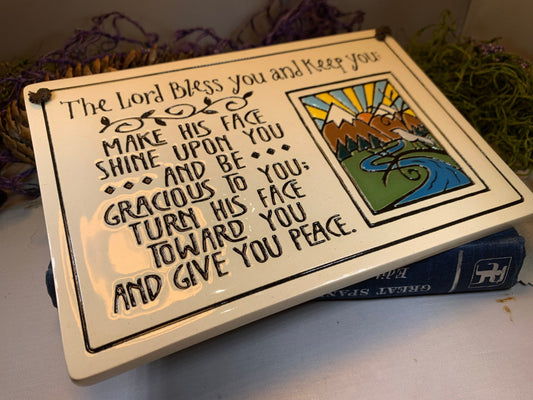 The Lord Bless you and Keep you:
MAKE HIS FACE
SHINE UPON YOU
AND BE
GRACIOUS TO YOU;
TURN HIS FACE
TOWARD YOU
AND GIVE YOU PEACE.
GREAT SPAN
Edit